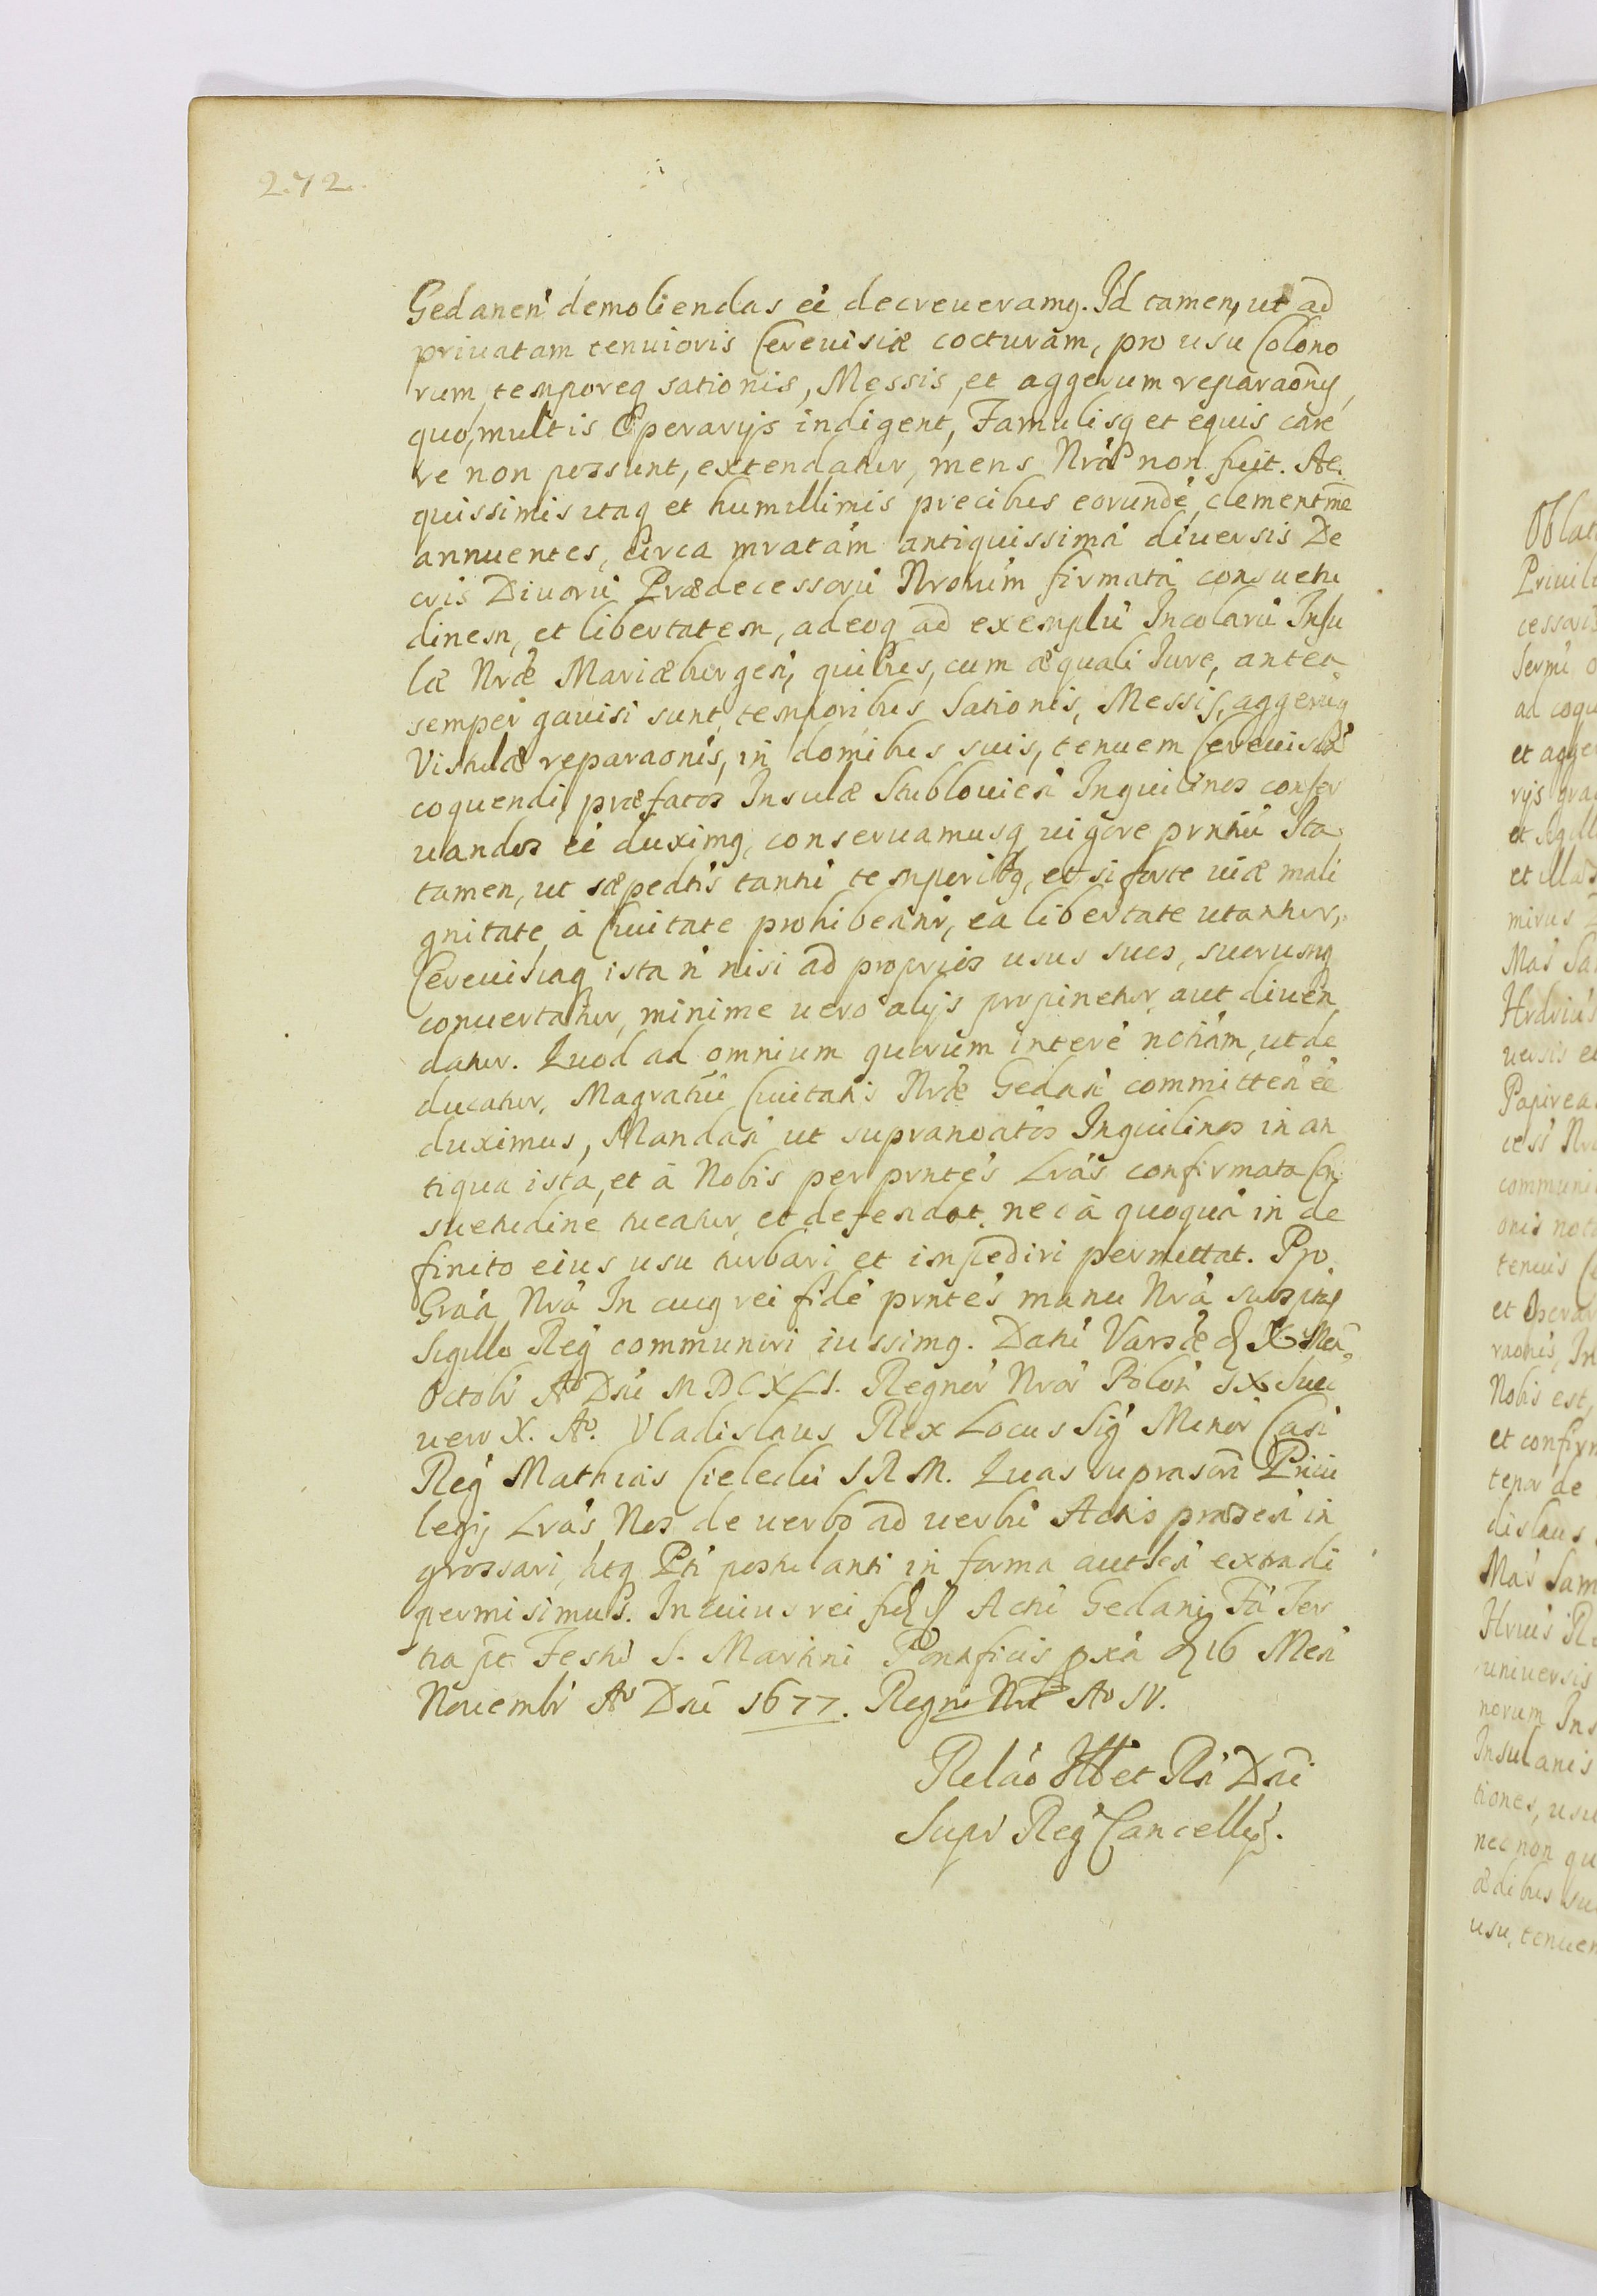 272.
Gedanen̄ demoliendas eē decreueramq. Id tamen, ut ad
priuatam tenuioris Cereuisiæ cocturam, pro usu Colono
rum, temporeq sationis, Messis, et aggerum reparaōnis,
quo, multis Operarijs indigent, Famulisq et equis care
re non possunt, extendatur, mens Nrā non fuit. Ae
quissimis itaq et humillimis precibus eorundē clementm̄e
annuentes, circa mratam antiquissimā diuersis De
cris Diuorū Prædecessorū Nrorum firmatā consuetu
dinem, et libertatem, adeoq ad exemplū Incolarū Insu
læ Nræ Mariæburgeñ, quibus, cum æquali Iure, antea
semper gauisi sunt, temporibus Sationis, Messis, aggerūq
Vistulæ reparaonis, in domibus suis, tenuem Cereuisiā
coquendi, præfatos Insulæ Stublouieñ Inquilinos conser
uandos eē duximq, conseruamusq uigore prntiū Ita
tamen, ut sæpedtis tantū temporibq, et si forte uiæ mali
gnitate, à Ciuitate prohibeantr, ea libertate utantur,
Cereuisiaq ista ñ nisi ad proprios usus suos, suorumq
conuertatur, minime uero alijs propinetur, aut diuen
datur. Quod ad omnium quorum interē notiam, ut de
ducatur, Magratui Ciuitatis Nræ Gedañ committeñ eē
duximus, Mandañ ut supranoatos Inquilinos in an
tiqua ista, et à Nobis per prntes Lrās confirmata Con
suetudine tueatur, et defendat, nec à quoquā in de
finito eius usu turbari et impediri permittat. Pro
Graā Nrā In cuiq rei fidē prntes manu Nrā subscrās
Sigillo Reg communiri iussimq. Datū Varsæ d X Meñ
Octobr Ao Dni MDCXLI. Regnor Nror Poloñ IX Suec
uero X. Ao. Vladislaus Rex Locus Sig Minor Canc
Reg Mathias Cielecki SRM. Quas suprascr̄ Priui
legij Lrās Nos de uerbo ad uerbū Actis præseñ in
grossari, htq Pti postulanti in forma autheñ extradi
permisimus. In cuius rei fid Actū Gedani Fā Ter
tia pt Festū S. Martini Pontificis pxā d 16 Meñ
Nouembr Ao Dni 1677. Regni Nri Ao IV.
Relāo Ill et Rñ Dni
Supr Reg Cancellrij.
Oblat
Priuile
cessori
ad coqu
et agge
rijs gra
et Sigill
et illas
mirus
Mas Sa
uersis e
Papirea
cess Nr
communi
onis not
tenuis C
et Operar
raonis, In
Nobis est,
et confirm
tenor de
dislaus
Mas Sam
uniuersis
norum Ins
Insulanis
tiones, usu
nec non qu
ædibus su
usu, tenuem